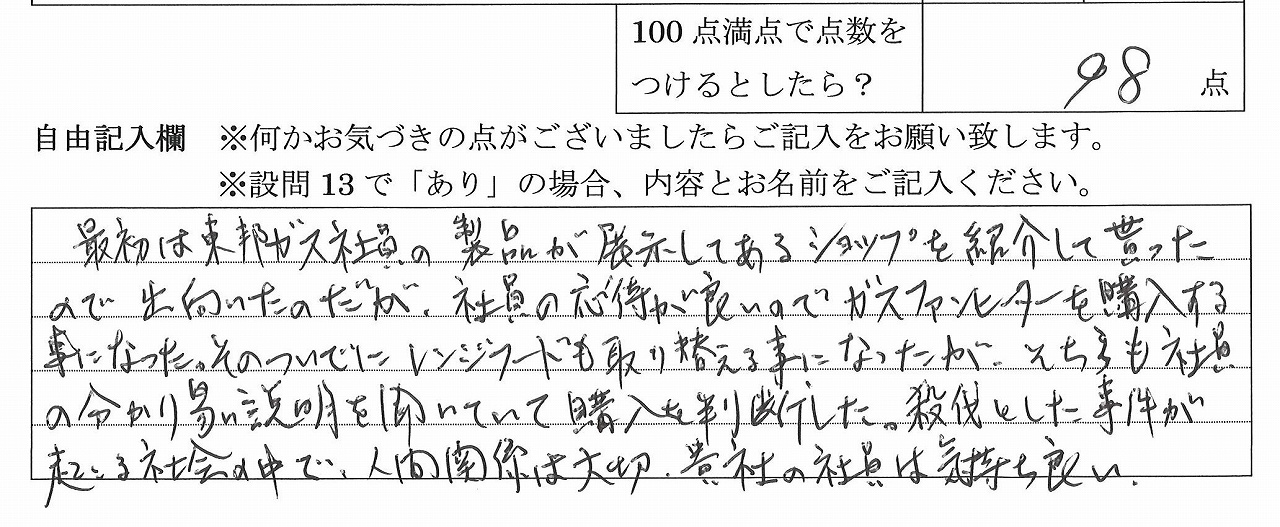 100 点満点で点数を
つけるとしたら？ 98 点
自由記入欄 ※何かお気づきの点がございましたらご記入をお願い致します。
※設問 13 で「あり」の場合、内容とお名前をご記入ください。
最初は東邦ガス社員の製品が展示してあるショップを紹介して貰った
ので出向いたのだが、社員の応待が良いのでガスファンヒーターを購入する
事になった。そのついでにレンジフードも取り替える事になったが、そちらも社員
の分かり易い説明を聞いていて購入を判断した。殺伐とした事件が
起こる社会の中で、人間関係は大切、貴社の社員は気持ち良い。